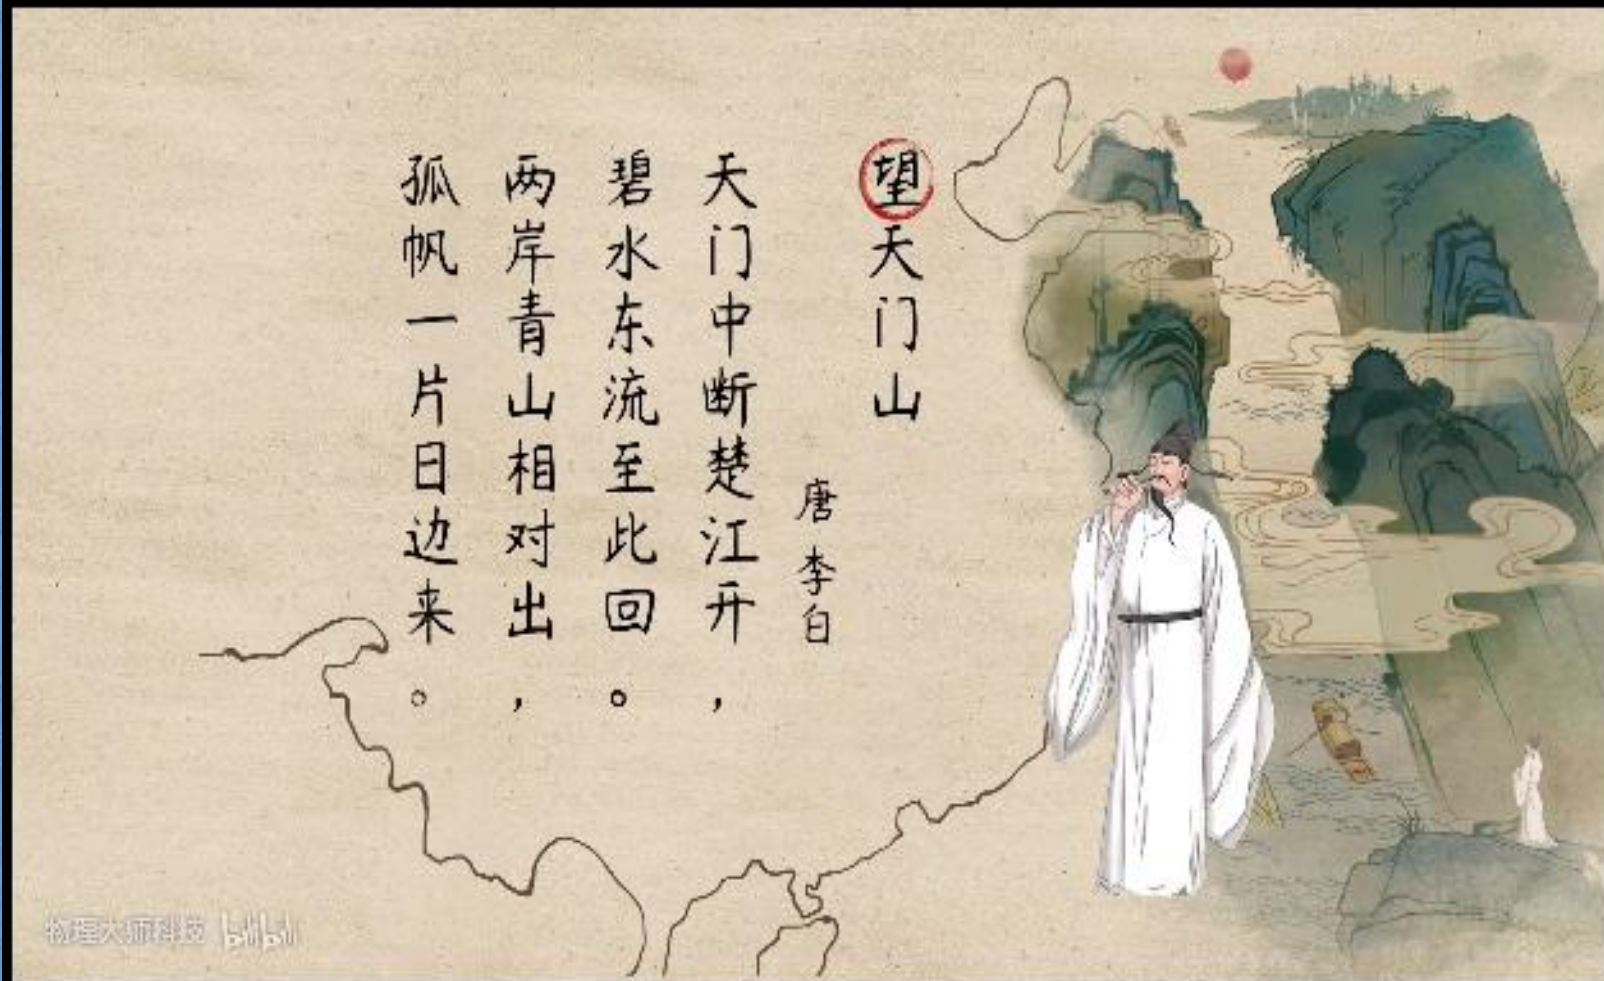 望天门山
唐 李白
天门中断楚江开，
碧水东流至此回。
两岸青山相对出，
孤帆一片日边来。
物理大师科技 bilibili